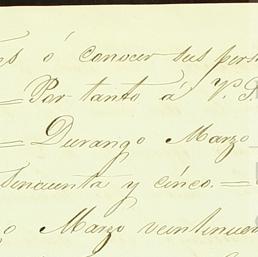 ó conocer sus pers
= Por tanto á V. S.
= Durango Marzo
sincuenta y cinco. =
o Marzo veintinue